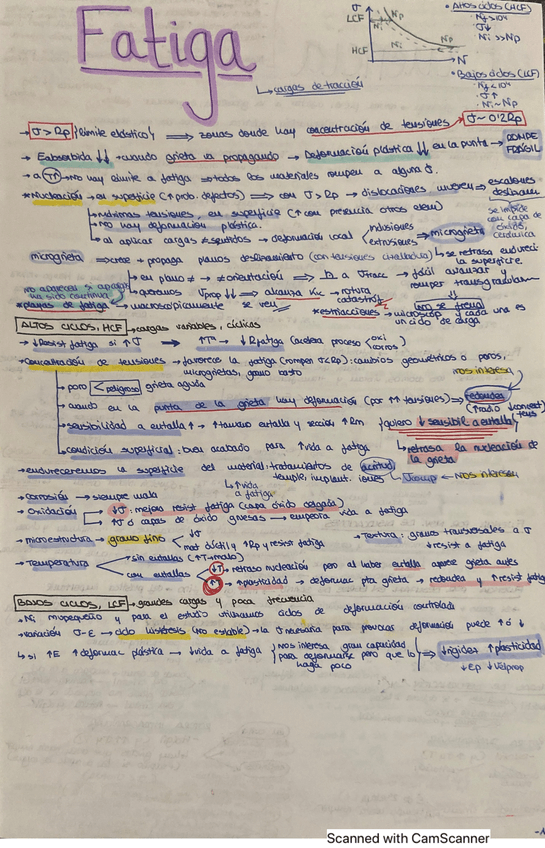 Fatiga
→ cargas de tracción
σ
LCF
HCF
Ni
Np
Ni
Np
N
• Altos ciclos (HCF)
· Nf > 10⁴
· σ↓
· Ni >> Np
• Bajos ciclos (LCF)
· Nf < 10⁴
· σ ↑
· Ni ~ Np
→ σ > Rp (límite elástico) ⟹ zonas donde hay concentración de tensiones
σ ~ 0'2Rp
→ Eabsorbida ↓↓ → cuando grieta va propagando → Deformación plástica ↓↓ en la punta → ROMPE FRÁGIL
→ a T → no hay límite a fatiga → todos los materiales rompen a alguna σ.
*Nucleación → en superficie (↑ prob. defectos) ⟹ con σ > Rp → dislocaciones mueven → escalones deslizam.
→ máximas tensiones, en superficie (↑ con presencia otros elem)
→ No hay deformación plástica.
→ al aplicar cargas ≠ sentidos → deformación local
intrusiones
extrusiones
→ microgrieta
se impide con capa de óxido, cerámica
↳ se retrasa endureci. la superficie.
microgrieta ⟹ crece + propaga planos deslizamiento (con tensiones cizalladura)
→ en plano ≠ → ≠ orientación ⟹ σ tracc → fácil avanzar y romper transgranular
no aparecen si aparato ha sido continua
→ queremos Vprop ↓↓ ⟹ alcanza Kc → rotura catastróf.
no se frena
*playas de fatiga → macroscópicamente se ven
*estriaciones → microscóp y cada una es un ciclo de carga
ALTOS CICLOS, HCF → cargas variables, cíclicas
→ ↓Resist fatiga si ↑ σ → ↑T → ↓ Rfatiga (acelera proceso
oxi
corros)
→ concentración de tensiones → favorece la fatiga (rompen σ<Rp): cambios geométricos o poros, microgrietas, grano basto
→ poro < peligroso grieta aguda
nos interesa
→ cuando en la punta de la grieta hay deformación (por ↑↑ tensiones) ⟹ redondea (↑radio ↓concent) tens
→ sensibilidad a entalla ↑ → ↑ tamaño entalla y sección ↑ Rm
¡quiero ↓ sensibil a entalla!
→ condición superficial: buen acabado para ↑ vida a fatiga
→ retrasa la nucleación de la grieta
→ endureceremos la superficie del material: tratamientos de acritud, temple, implant. iones
↳ ↑ vida a fatiga
σcomp ← NOS interesan
→ corrosión → siempre mala
→ Oxidación
→ ↓σ: mejora resist fatiga (capa óxido delgada)
→ ↑σ ó capas de óxido gruesas → empeora vida a fatiga
→ microestructura → grano fino
↓σ
mat dúctil y ↑ Rp y resist fatiga
→ Textura: granos transversales a σ ↓ resist a fatiga
→ Temperatura
sin entallas (↑T → malo)
con entallas
↓T → retraso nucleación pero al haber entalla aparece grieta antes
↑ → plasticidad → deformac pta grieta → redondea y ↑ resist fatiga
BAJOS CICLOS, LCF → grandes cargas y poca frecuencia
→ Ni muy pequeño y para el estudio utilizamos ciclos de deformación controlada
→ variación σ-E → ciclo histéresis (no estable) → la σ necesaria para provocar deformación puede ↑ ó ↓
↳ si ↑E ↑ deformac plástica → ↓vida a fatiga
nos interesa gran capacidad para deformarse pero que lo haga poco
⟹ ↓rigidez ↑plasticidad
↓Ep ↓Velprop
Scanned with CamScanner